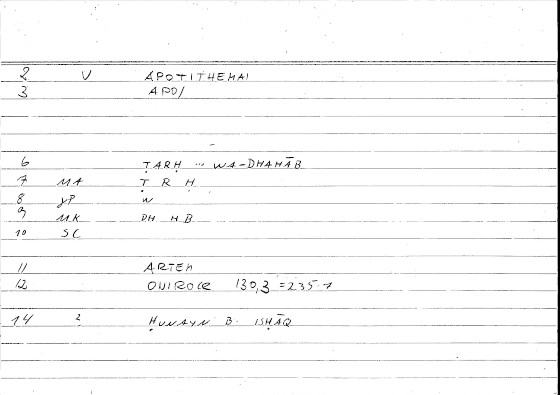 2 V APOTITHEMAI
3 APO/
6 ṬARḤ ... WA-DHAHĀB
7 MA Ṭ R Ḥ
8 γP W
9 MK DH H B
10 SC
11 ARTEM
12 ONIROCR 130,3 = 235-1
14 2 ḤUNAYN B. ISḤĀQ